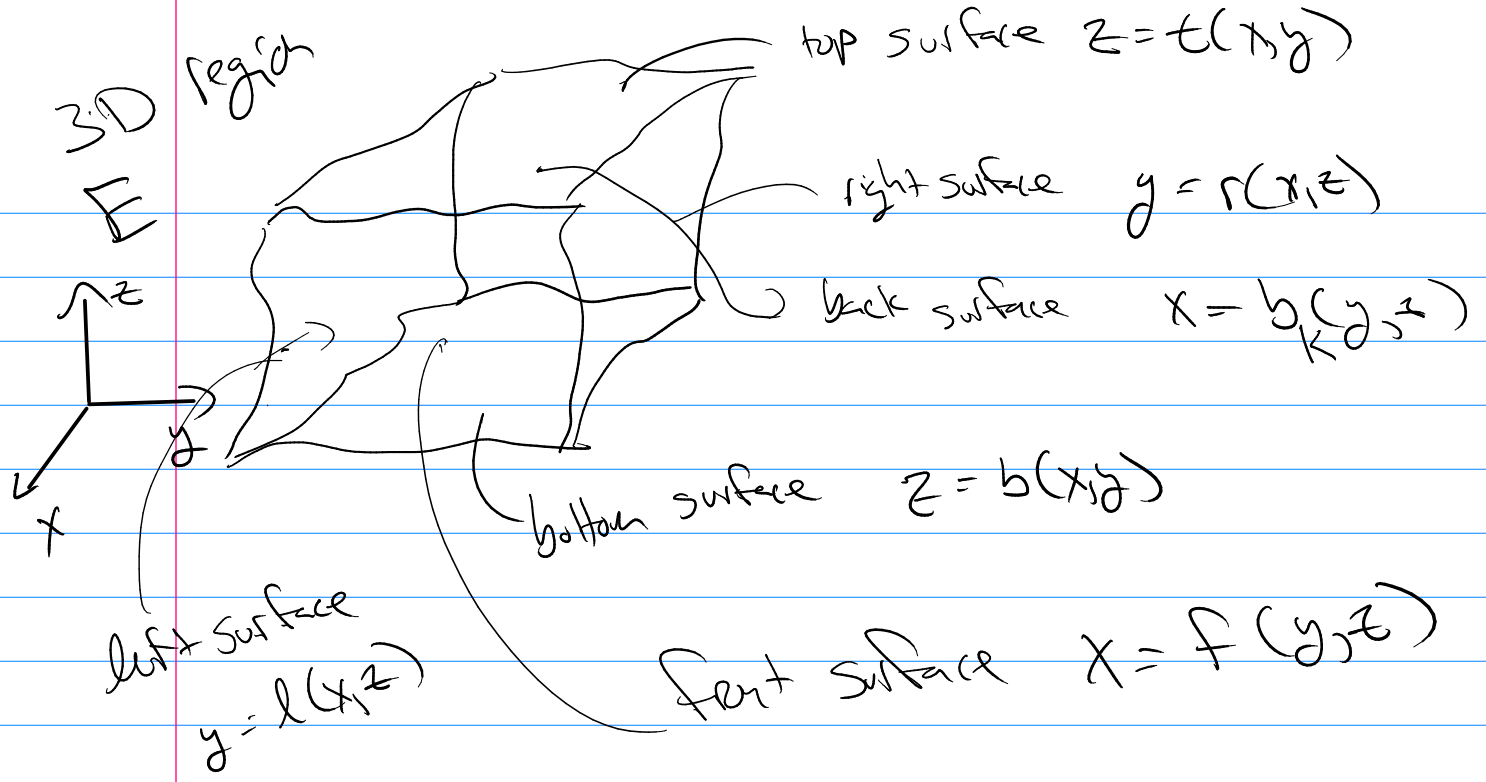 3D region
E
top surface z = t(x,y)
right surface y = r(x,z)
back surface x = bk(y,z)
z
y
x
bottom surface z = b(x,y)
left surface
y = l(x,z)
front surface x = f(y,z)